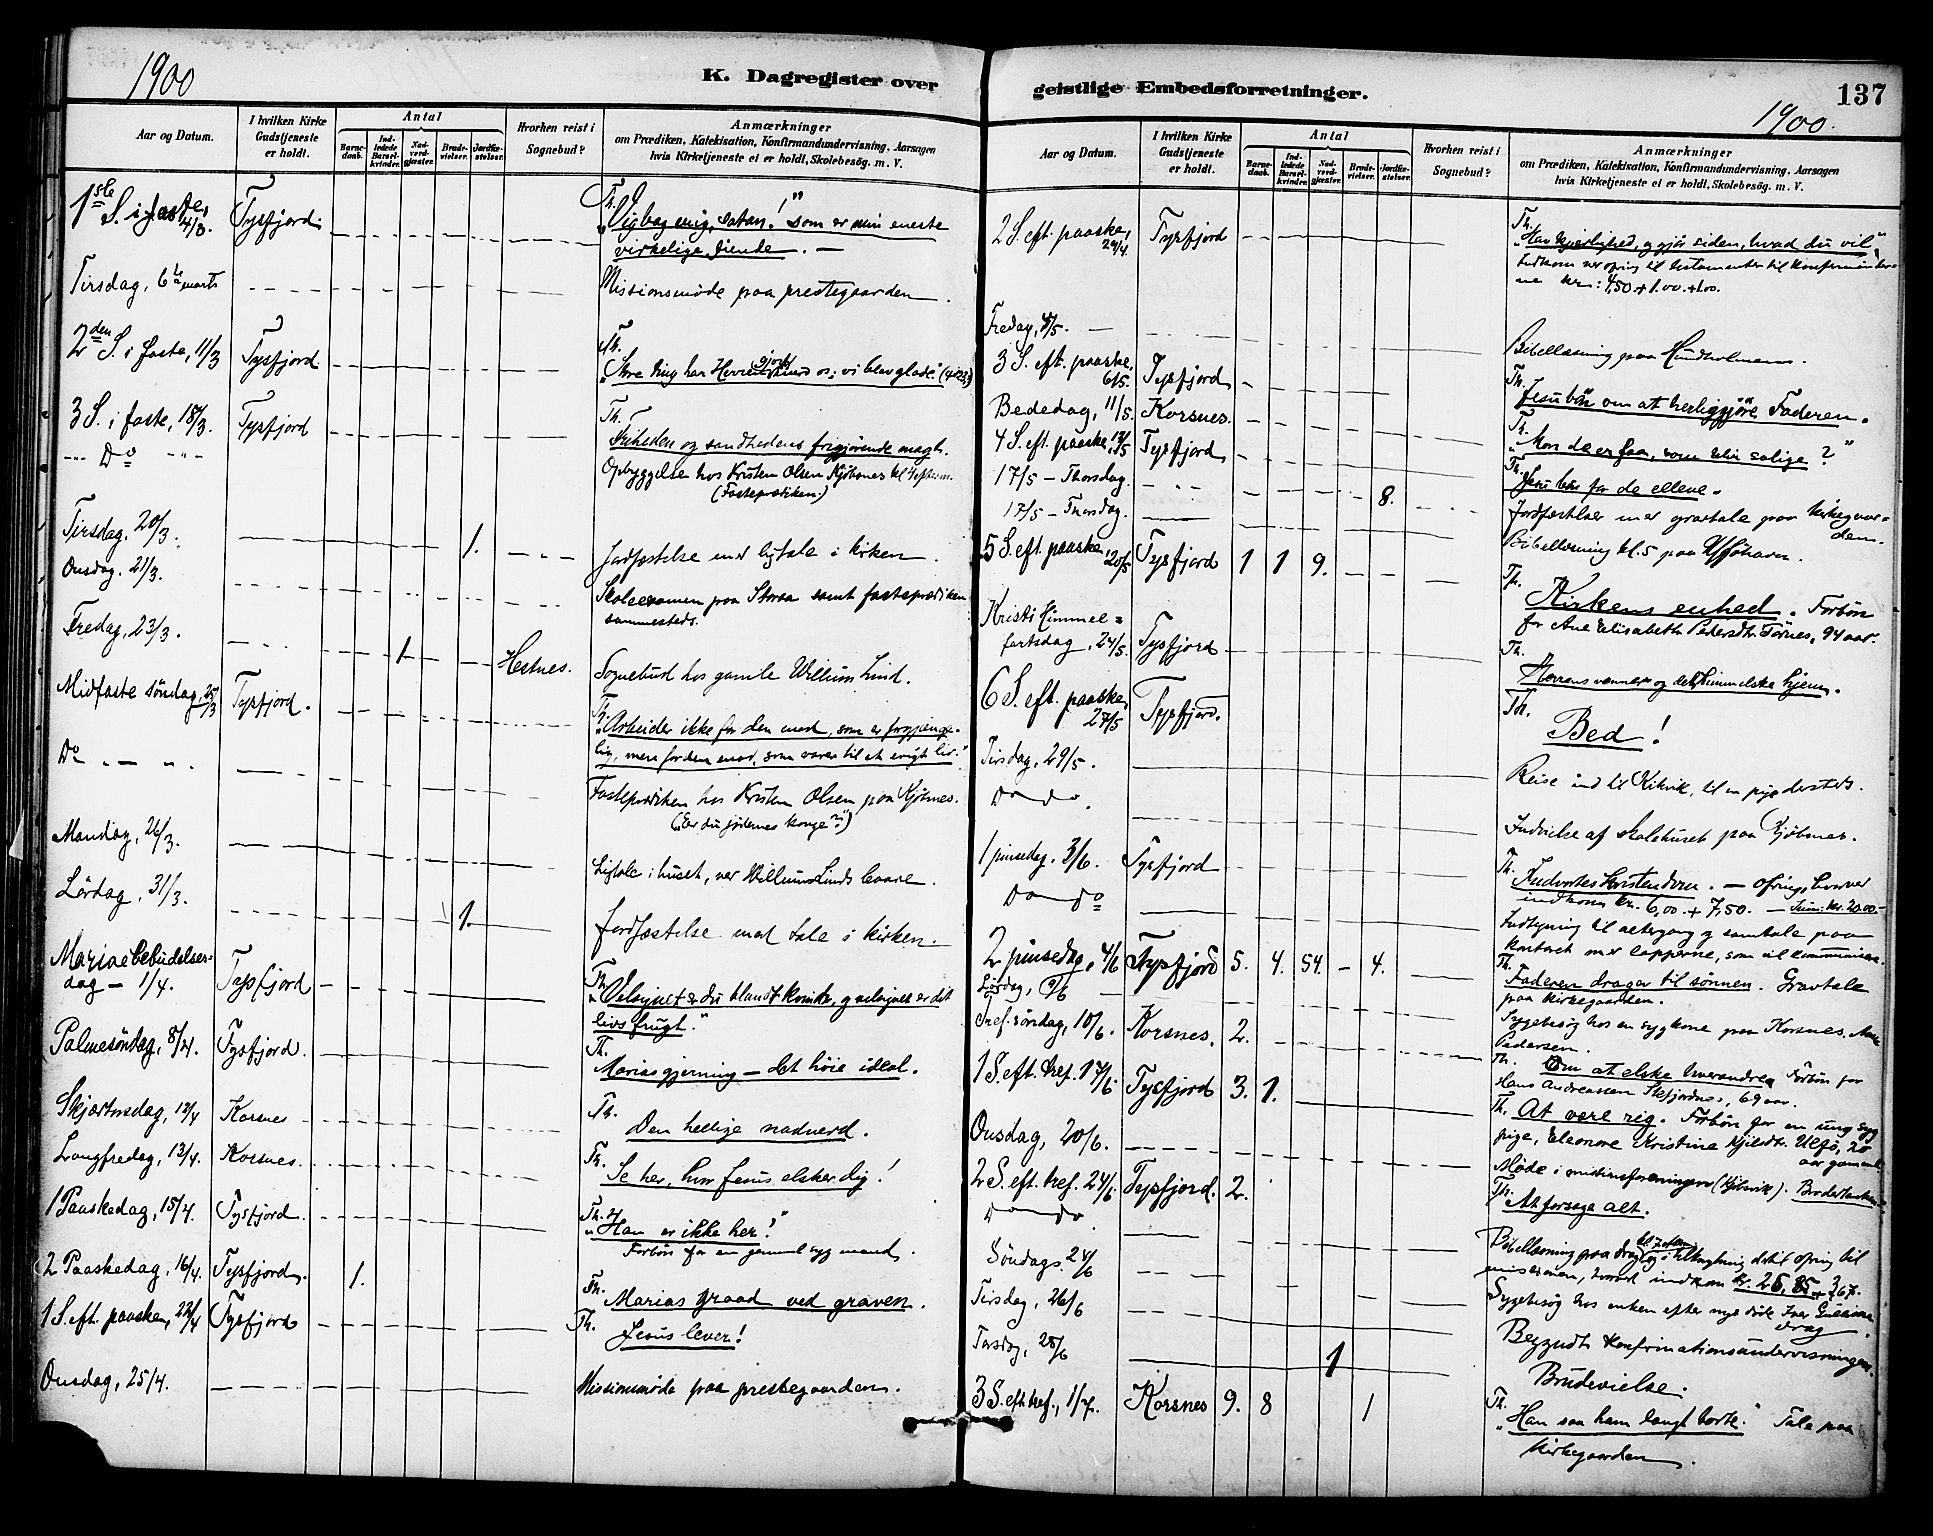 1900
K. Dagregister over
Aar og Datum.
I hvilken Kirke Gudstjeneste er holdt.
Antal
Barnedaab.
Indledede Barselkvinder.
Nadverdgjæster.
Brudevielser.
Jordfæstelser.
Hvorhen reist i Sognebud?
Anmærkninger
om Prædiken, Katekisation, Konfirmandundervisning, Aarsagen
hvis Kirketjeneste ei er holdt, Skolebesög. m. V.
1ste S. i faste, 4/3. Tysfjord. Th. "Vig bag mig, satan!" som er min eneste
virkelige fiende. —
Tirsdag, 6te marts Missionsmöde paa prestegaarden.
2den S. i faste, 11/3 Tysfjord Th.
"Store ting har Herren gjort os; vi blev glade."
3 S. i faste, 18/3. Tysfjord Th.
Friheden og sandhedens frigjörende magt.
-"- Do -"- Opbyggelse hos Kristen Olsen Kjöbsnes kl.
(Fasteprædiken.)
Tirsdag, 20/3. 1. Jordfæstelse med ligtale i kirken.
Onsdag, 21/3. Skoleexamen paa Storaa samt fasteprædiken
sammesteds.
Fredag, 23/3. 1 Hestnes. Sognebud hos gamle Willum Lind.
Midfaste söndag, 25/3 Tysfjord. Th. "Arbeider ikke for den mad, som er forgjænge-
lig, men for den mad, som varer til et evigt liv."
Do - " - Fasteprædiken hos Kristen Olsen paa Kjöbsnes.
("Er du jödernes konge?")
Mandag, 26/3. Ligtale i huset, ved Willum Linds baare.
Lördag, 31/3. 1. Jordfæstelse med tale i kirken.
Mariæ bebudelses-
dag — 1/4. Tysfjord Th. "Velsignet er du blandt kvinder, og velsignet er dit
livs frugt."
Palmesöndag, 8/4. Tysfjord. Th.
Marias gjerning — det höie ideal.
Skjærtorsdag, 12/4 Korsnes Th.
Den hellige nadverd.
Langfredag, 13/4. Korsnes. Th. Se her, hvor Jesus elsker dig!
1 Paaskedag, 15/4. Tysfjord. Th. "Han er ikke her!"
Forbön for en gammel syg mand.
2 Paaskedag, 16/4. Tysfjord. 1. Th. Marias graad ved graven.
1 S. eft. paaske, 22/4 Tysfjord Th. Jesus lever!
Onsdag, 25/4. Missionsmöde paa prestegaarden.
geistlige Embedsforretninger.
137
1900.
Aar og Datum.
I hvilken Kirke Gudstjeneste er holdt.
Antal
Barnedaab.
Indledede Barselkvinder.
Nadverdgjæster.
Brudevielser.
Jordfæstelser.
Hvorhen reist i Sognebud?
Anmærkninger
om Prædiken, Katekisation, Konfirmandundervisning, Aarsagen
hvis Kirketjeneste ei er holdt, Skolebesög. m. V.
2 S. eft. paaske, 29/4. Tysfjord Th.
"Hav kjærlighed, og gjör siden, hvad du vil"
Indkom ved ofring til testamenter til konfirmander-
ne kr.: 4,50 + 1.00. + 1.00.
Fredag, 4/5. — Bibellæsning paa Hundholmen.
3 S. eft. paaske, 6/5. Tysfjord Th. Jesu bön om at herliggjöre Faderen.
Bededag, 11/5. Korsnes. Th. "Mon de er faa, som blir salige?"
4 S. eft. paaske, 13/5 Tysfjord Th. Jesu bön for de elleve.
17/5 - Thorsdag. 8. Jordfæstelser med gravtale paa kirkegaar-
den.
17/5 - Thorsdag. Bibellæsning kl. 5 paa
5 S. eft. paaske, 20/5 Tysfjord 1 1 9. Th. Kirkens enhed. Forbön
for Ane Elisabeth Pedersdtr. 94 aar.
Kristi Himmel=
fartsdag, 24/5. Tysfjord Th.
Herrens venner og det himmelske hjem.
6 S. eft. paaske, 27/5 Tysfjord. Th.
Bed!
Tirsdag, 29/5. Reise ind til Kikvik, til en syg
Do — do. Indvielse af Skolehuset paa Kjöbsnes.
1 pinsedag. 3/6. Tysfjord Th. Indvortes kristendom. — Ofring, hvorved
indkom kr. 6,00. + 7,50. — kr. 20.00.
Do — do Indtegning til altergang og samtale paa
kontoret med lapperne, som vil kommunicere.
2 pinsedag, 4/6 Tysfjord 5. 4. 54. - 4. Th. Faderen drager til sönnen. Gravtale
paa kirkegaarden.
Lördag, 9/6 — Sygebesög hos en syg kone paa Korsnes,
Pedersen.
Tref. söndag, 10/6. Korsnes. 2. Th. Om at elske hverandre. Forbön for
Hans Andreassen Stefjordnes, 69 aar.
1 S. eft. tref. 17/6. Tysfjord 3. 1. Th. At være rig. Forbön for en ung syg
pige, Eleonore Kristine Kjeldtr. Ulfö, 20
aar gammel
Onsdag, 20/6. Möde i missionsforeningen (Kjöbsvik).
2 S. eft. tref. 24/6. Tysfjord. 2. Th. At forsage alt.
Do — do Bibellæsning paa drag og i tilknytning dertil ofring til
missionen, hvorved indkom kr. 25,85 + 3,67.
Söndag. 24/6 Sygebesög hos enken efter nys döde
drag
Tirsdag, 26/6 Begyndt Konfirmationsundervisningen.
Torsdag, 28/6 1 Brudevielse.
3 S. eft. tref., 1/7. Korsnes 9. 8 1 Th.
"Han saa ham langt borte." Tale paa
kirkegaarden.